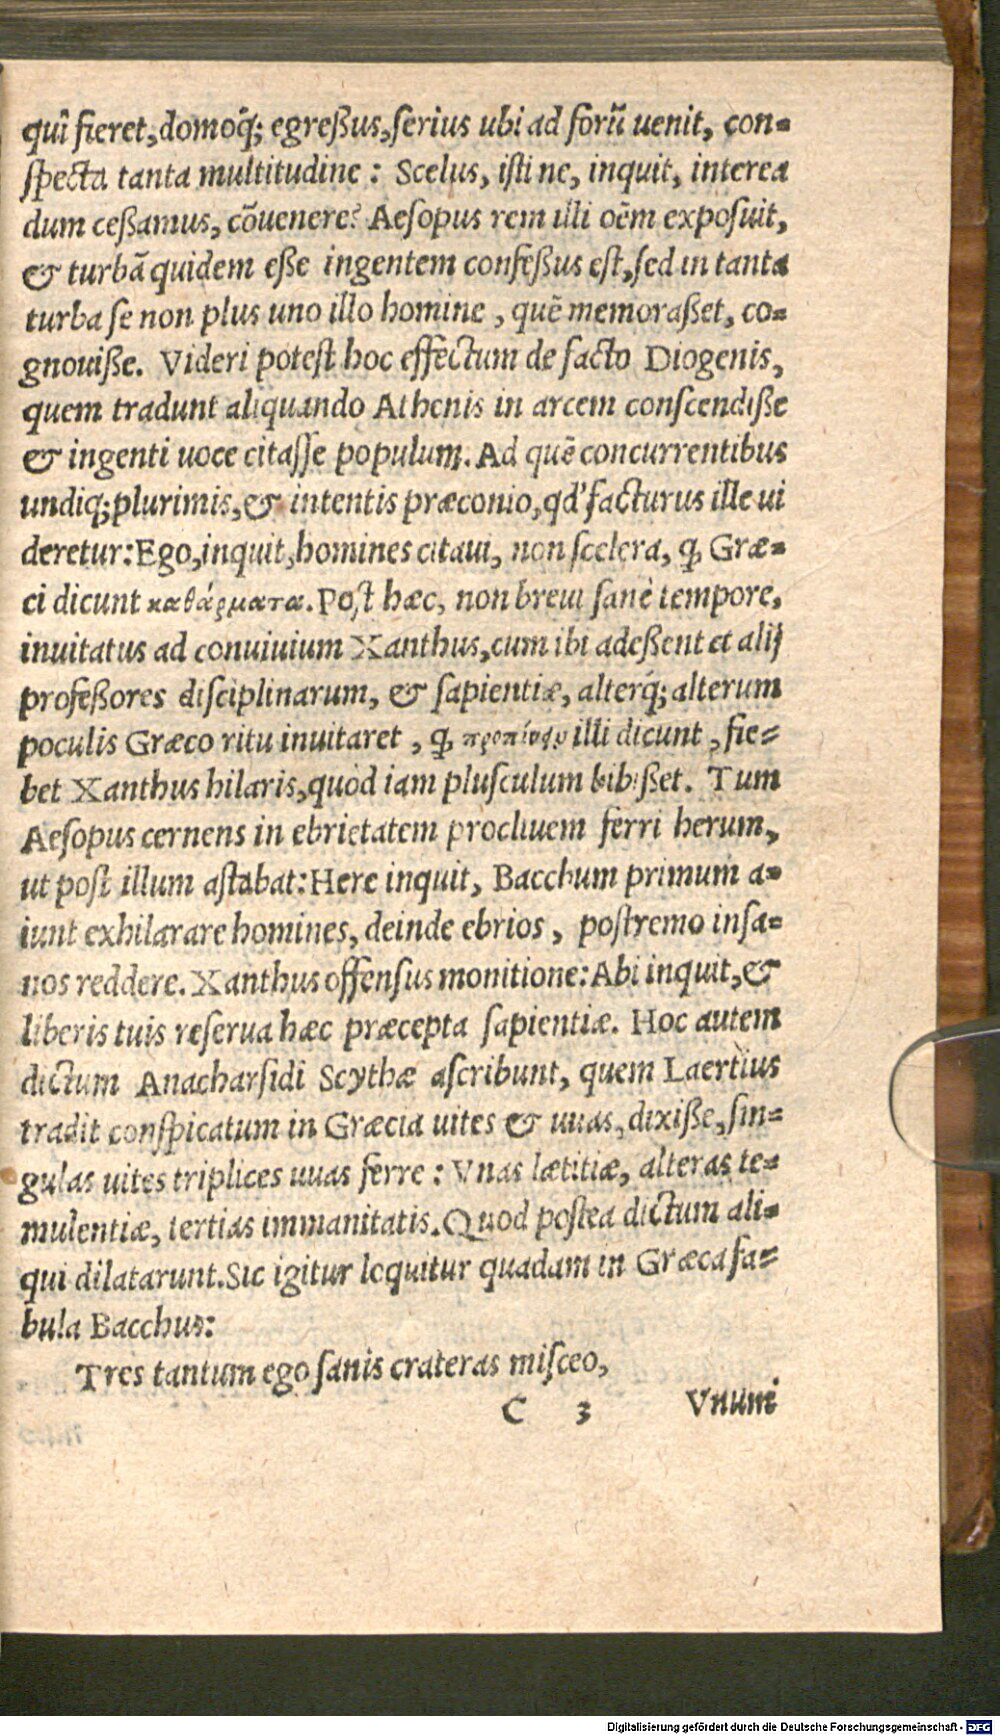 quî fieret, domoq́; egreßus, serius ubi ad forũ uenit, con-
specta tanta multitudine : Scelus, isti ne, inquit, interea
dum ceßamus, cõuenere? Aesopus rem illi oẽm exposuit,
& turbã quidem eße ingentem confeßus est, sed in tanta
turba se non plus uno illo homine , quẽ memoraßet, co-
gnouiße. Videri potest hoc effectum de facto Diogenis,
quem tradunt aliquando Athenis in arcem conscendiße
& ingenti uoce citasse populum. Ad quẽ concurrentibus
undiq; plurimis, & intentis præconio, qd' facturus ille ui
deretur: Ego, inquit, homines citaui, non scelera, ꝙ Græ-
ci dicunt καθάρματα. Post hæc, non breui sanè tempore,
inuitatus ad conuiuium Xanthus, cum ibi adeßent et alij
profeßores disciplinarum, & sapientiæ, alterq́; alterum
poculis Græco ritu inuitaret , ꝙ προπίνειν illi dicunt , fie-
bet Xanthus hilaris, quòd iam plusculum bibißet. Tum
Aesopus cernens in ebrietatem procliuem ferri herum,
ut post illum astabat: Here inquit, Bacchum primum a-
iunt exhilarare homines, deinde ebrios , postremo insa-
nos reddere. Xanthus offensus monitione: Abi inquit, &
liberis tuis reserua hæc præcepta sapientiæ. Hoc autem
dictum Anacharsidi Scythæ ascribunt, quem Laertius
tradit conspicatum in Græcia uites & uuas, dixiße, sin-
gulas uites triplices uuas ferre : Vnas lætitiæ, alteras te-
mulentiæ, tertias immanitatis. Quod postea dictum ali-
qui dilatarunt. Sic igitur loquitur quadam in Græca fa-
bula Bacchus:
Tres tantum ego sanis crateras misceo,
C 3 Vnum
Digitalisierung gefördert durch die Deutsche Forschungsgemeinschaft - DFG